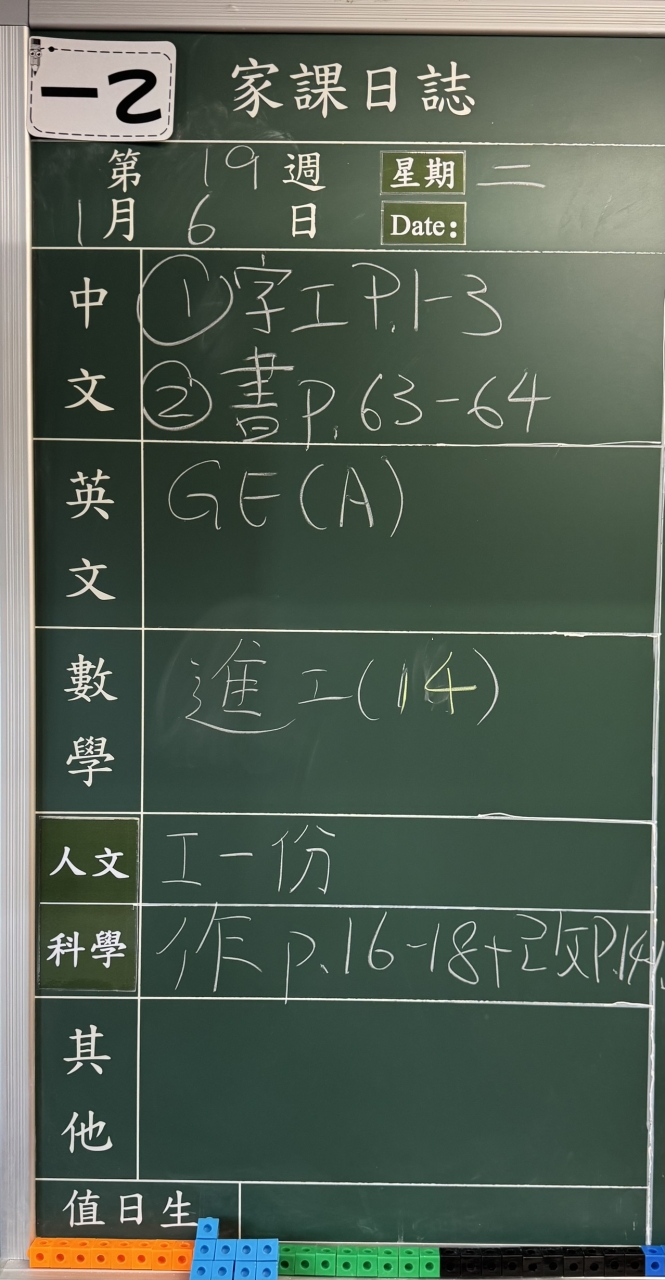 一乙
家課日誌
第 19 週 星期 二
1月 6 日 Date:
中文 ①字工P.1-3
②書p.63-64
英文 GE(A)
數學 進工(14)
人文 工一份
科學 作p.16-18+改P.14
其他
值日生